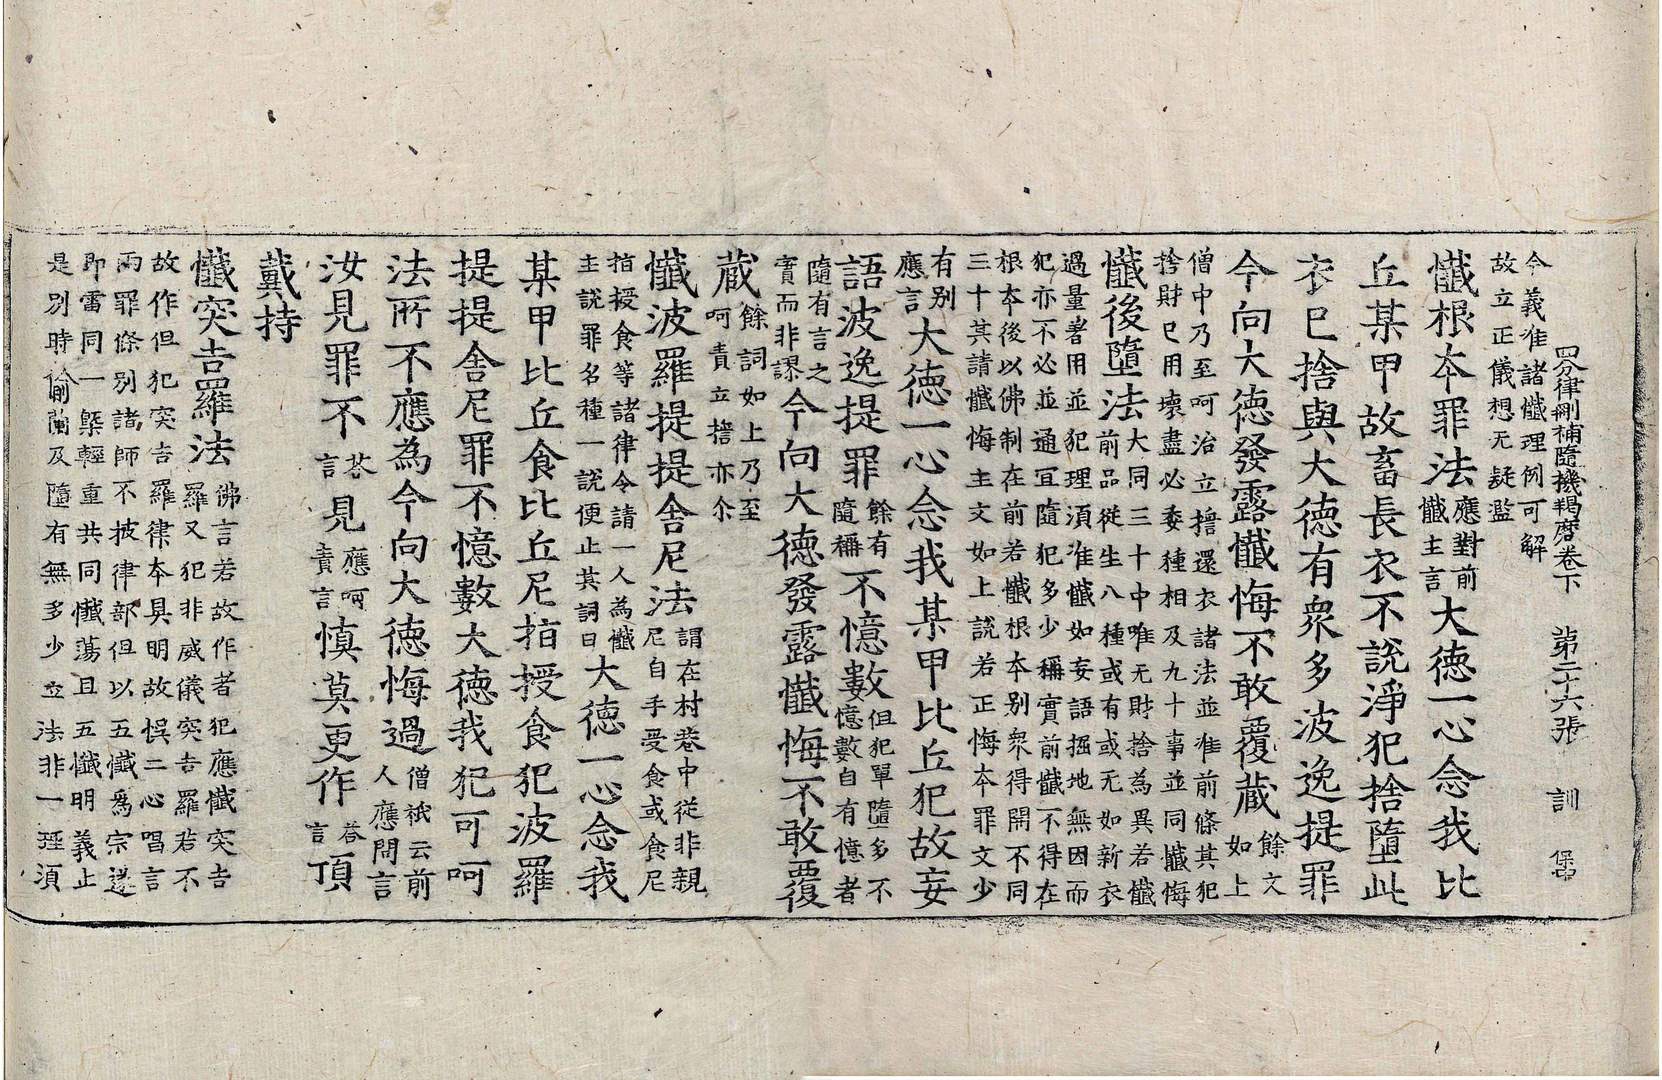 四分律刪補隨機羯磨卷下　第二十六張　訓
今義准諸懺理例可解
故立正儀想无疑濫
懺根本罪法應對前懺主言大德一心念我比
丘某甲故畜長衣不說淨犯捨墮此
衣已捨與大德有衆多波逸提罪
今向大德發露懺悔不敢覆藏餘文如上
僧中乃至呵治立擔還衣諸法並准前條其犯
捨財已用壞盡必委種相及九十事並同懺悔
懺後墮法前品從生八種或有或无如新衣
大同三十中唯无財捨為異若懺
過量著用並犯理須准懺如妄語掘地無因而
犯亦不必並通宜隨犯多少稱實前懺不得在
根本後以佛制在前若懺根本別衆得開不同
三十其請懺悔主文如上說若正悔本罪文少
有別應言大德一心念我某甲比丘犯故妄
語波逸提罪餘有隨稱不憶數但犯單墮多不憶數自有憶者
隨有言之實而非謬今向大德發露懺悔不敢覆
藏餘詞如上乃至呵責立擔亦尒
懺波羅提提舍尼法謂在村巷中從非親尼自手受食或食尼
指授食等諸律令請一人為懺
主說罪名種一說便止其詞曰大德一心念我
某甲比丘食比丘尼指授食犯波羅
提提舍尼罪不憶數大德我犯可呵
法所不應為今向大德悔過僧祇云前人應問言
汝見罪不荅言見應呵責言慎莫更作荅言頂
戴持
懺突吉羅法佛言若故作者犯應懺突吉羅又犯非威儀突吉羅若不
故作但犯突吉羅律本具明故悞二心唱言
兩罪條別諸師不披律部但以五懺爲宗遂
即雷同一槩輕重共同懺蕩且五懺明義止
是別時偷蘭及隨有無多少立法非一理須